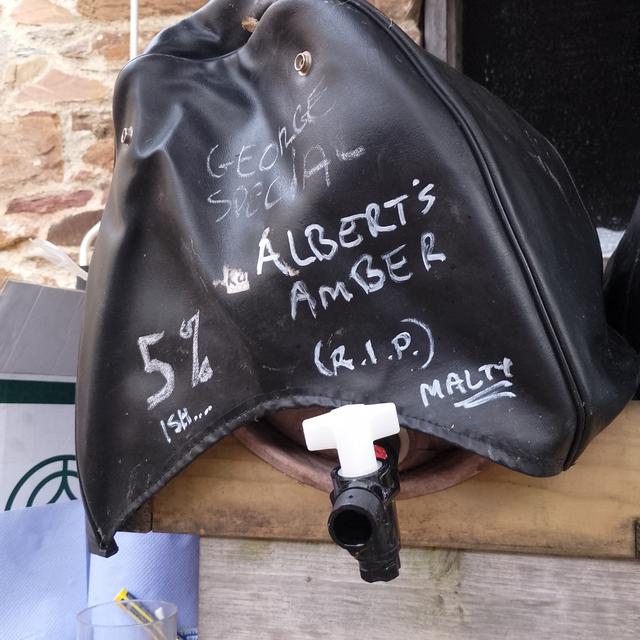 GEORGE
SPECIAL
ALBERT'S
AMBER
(R.I.P.)
5%
ISH....
MALTY